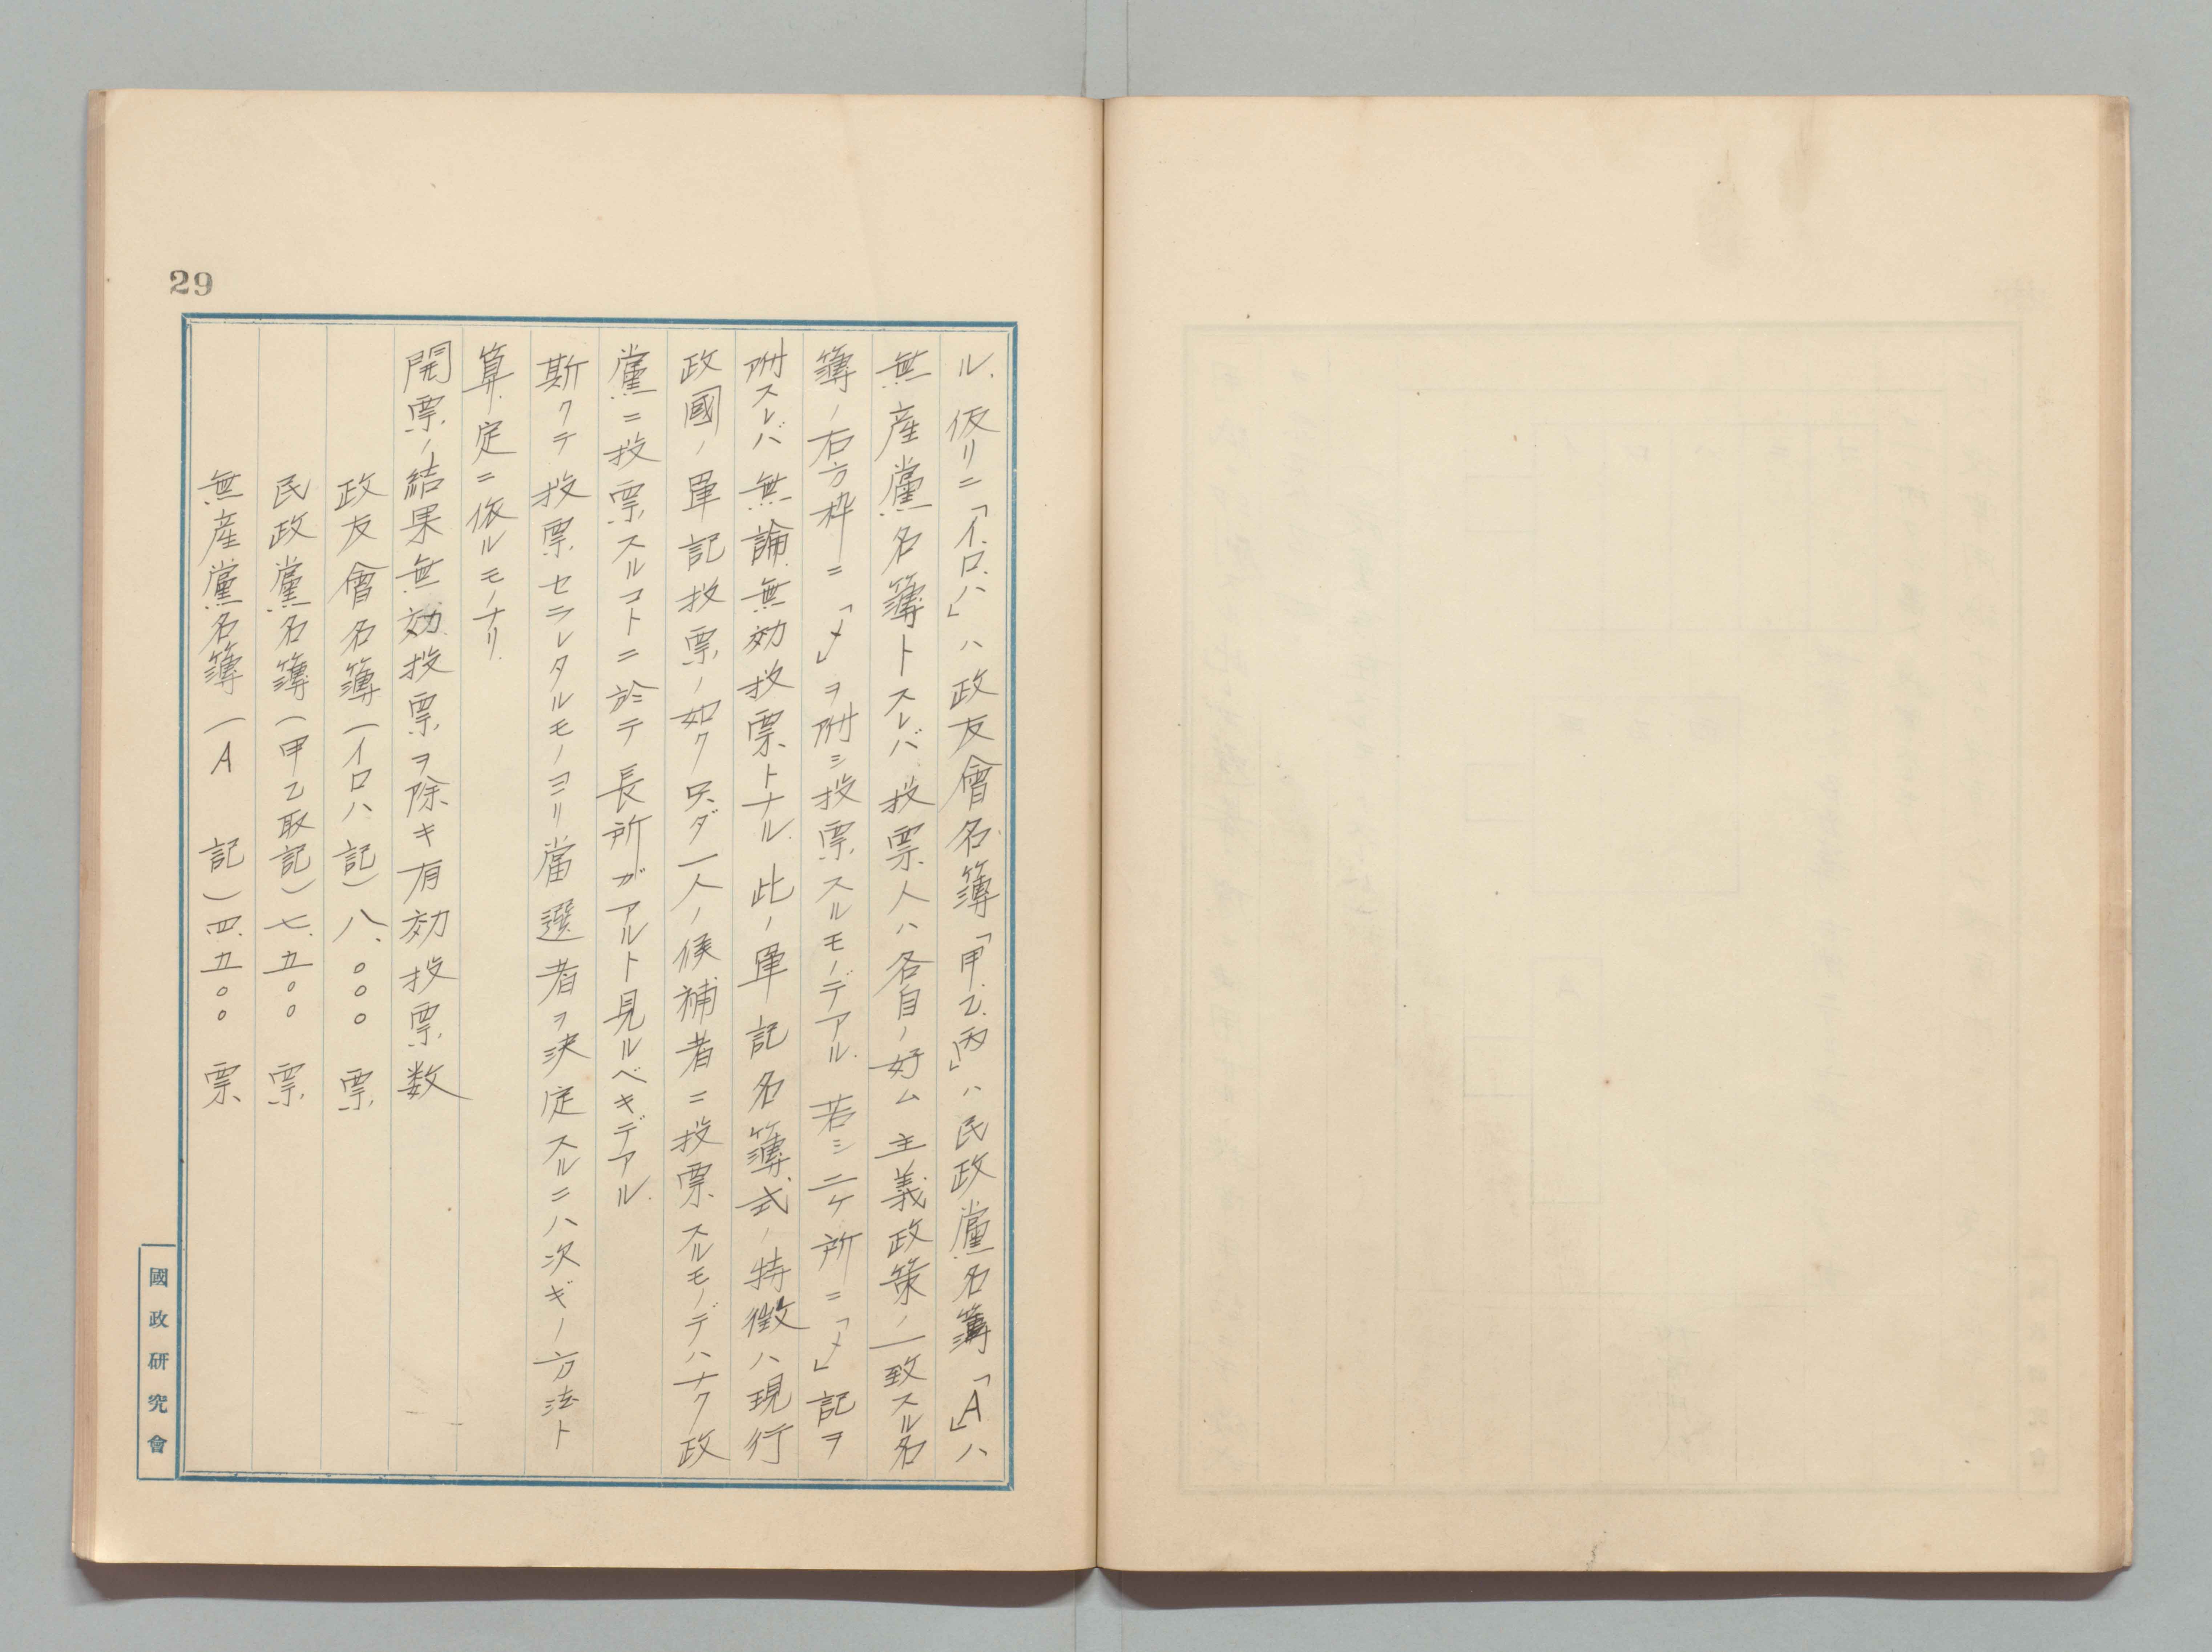 29
ル、仮リニ「イ、ロ、ハ」ハ政友會名簿「甲、乙、丙」ハ民政黨名簿「A」ハ
無産黨名簿トスレバ投票人ハ各自ノ好ム主義政策ノ一致スル名
簿ノ右方枠ニ「〆」ヲ附シ投票スルモノデアル、若シ二ケ所ニ「〆」記ヲ
附スレバ無論無効投票トナル、此ノ單記名簿式ノ特徴ハ現行
政國ノ單記投票ノ如ク只ダ一人ノ候補者ニ投票スルモノデハナク政
黨ニ投票スルコトニ於テ長所ガアルト見ルベキデアル、
斯クテ投票セラレタルモノヨリ當選者ヲ決定スルニハ次ギノ方法ト
算定ニ依ルモノナリ、
開票ノ結果無効投票ヲ除キ有効投票数
政友會名簿(イロハ記)八、〇〇〇票
民政黨名簿(甲乙取記)七、五〇〇票
無産黨名簿(A 記)四、五〇〇票
國政研究會